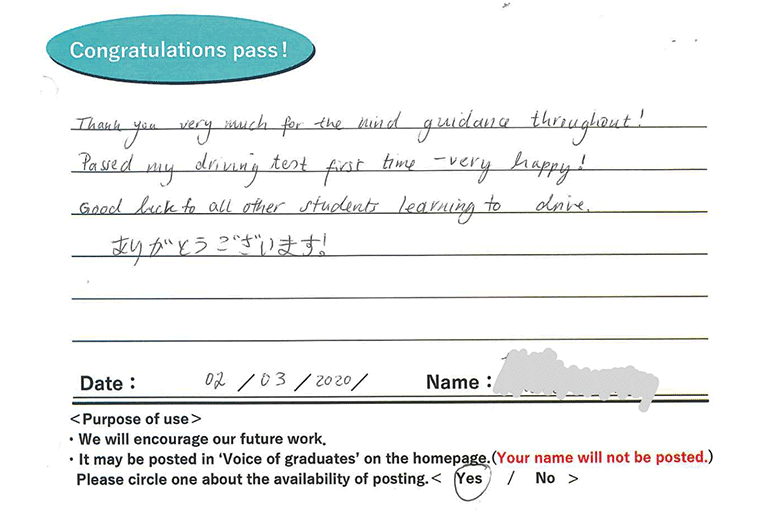 Congratulations pass!
Thank you very much for the kind guidance throughout!
Passed my driving test first time - very happy!
Good luck to all other students learning to drive.
ありがとうございます!
Date : 02 / 03 / 2020 / Name :
<Purpose of use>
・We will encourage our future work.
・It may be posted in 'Voice of graduates' on the homepage.(Your name will not be posted.)
Please circle one about the availability of posting.< Yes / No >